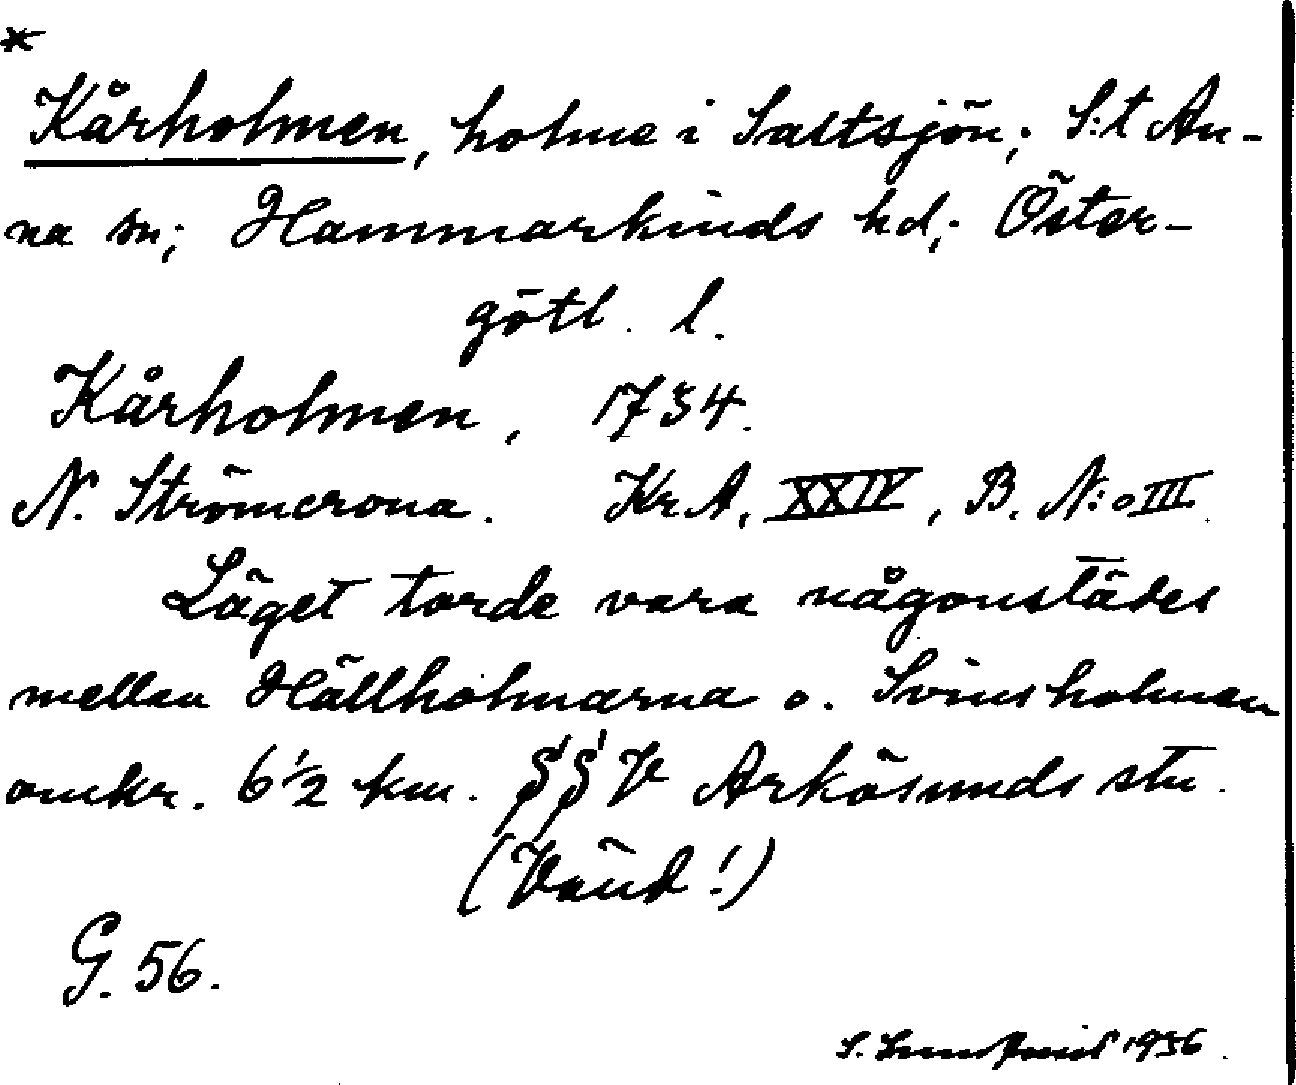 *
Kårholmen, holme i Saltsjön; S:t An-
na sn; Hammarkinds hd; Öster-
götl. l.
Kårholmen, 1734.
N. Strömcrona. Kr. A, XXIV, B. N:o III.
Läget torde vara någonstädes
mellan Hällholmarna o. Svinsholmen
omkr. 6 1/2 km. SSV Arkösunds stn.
(Vänd!)
G. 56.
S. 1936.